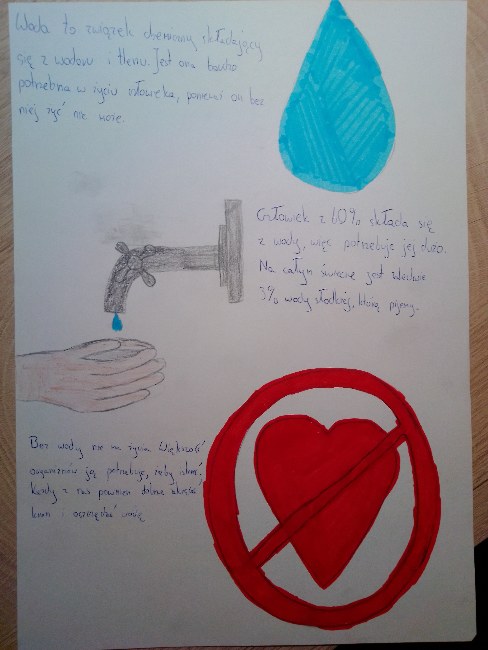 Woda to związek chemiczny składający
się z wodoru i tlenu. Jest ona bardzo
potrzebna w życiu człowieka, ponieważ on bez
niej żyć nie może.
Człowiek z 60% składa się
z wody, więc potrzebuje jej dużo.
Na całym świecie jest zaledwie
3% wody słodkiej, którą pijemy.
Bez wody nie ma życia. Większość
organizmów jej potrzebuje, żeby
Każdy z nas powinien dobrze
kran i oszczędzać wodę